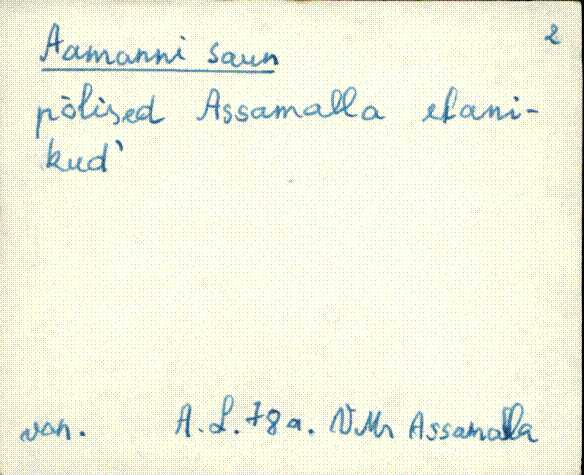 2
Aamanni saun
põlised Assamalla elani-
kud`
van. A. L. 78 a. VMr Assamalla